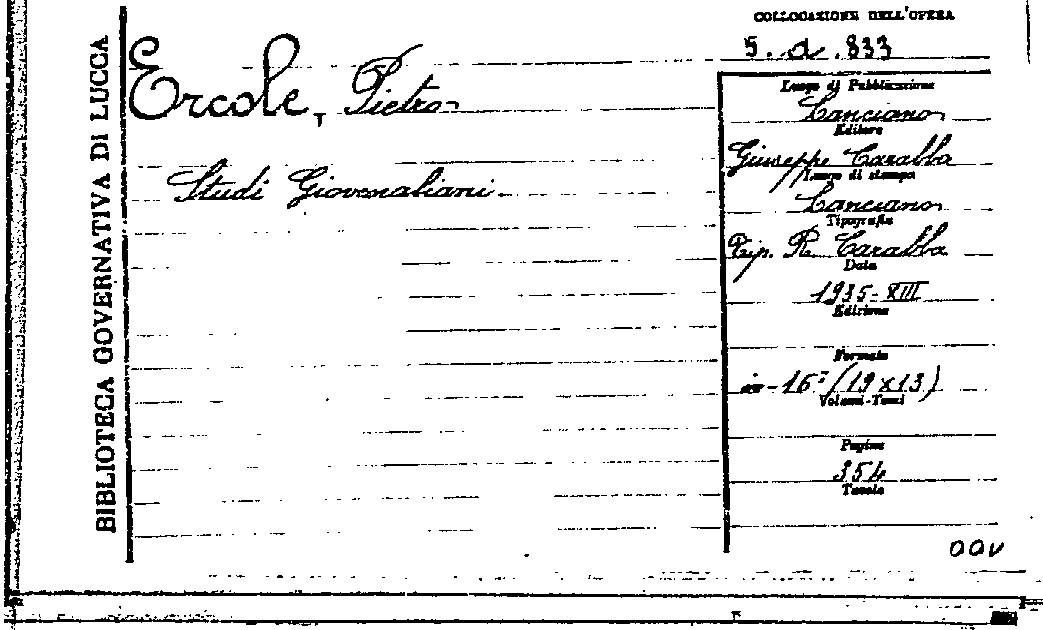 BIBLIOTECA GOVERNATIVA DI LUCCA
Ercole, Pietro
Studi Giovenaliani
COLLOCAZIONE DELL'OPERA
5. a. 833
Luogo di Pubblicazione
Lanciano
Editore
Giuseppe Carabba
Luogo di stampa
Lanciano
Tipografia
Tip. R. Carabba
Data
1935-XIII
Edizione
Formato
in-16º (19 x 13)
Volumi-Tomi
Pagine
354
Tavole